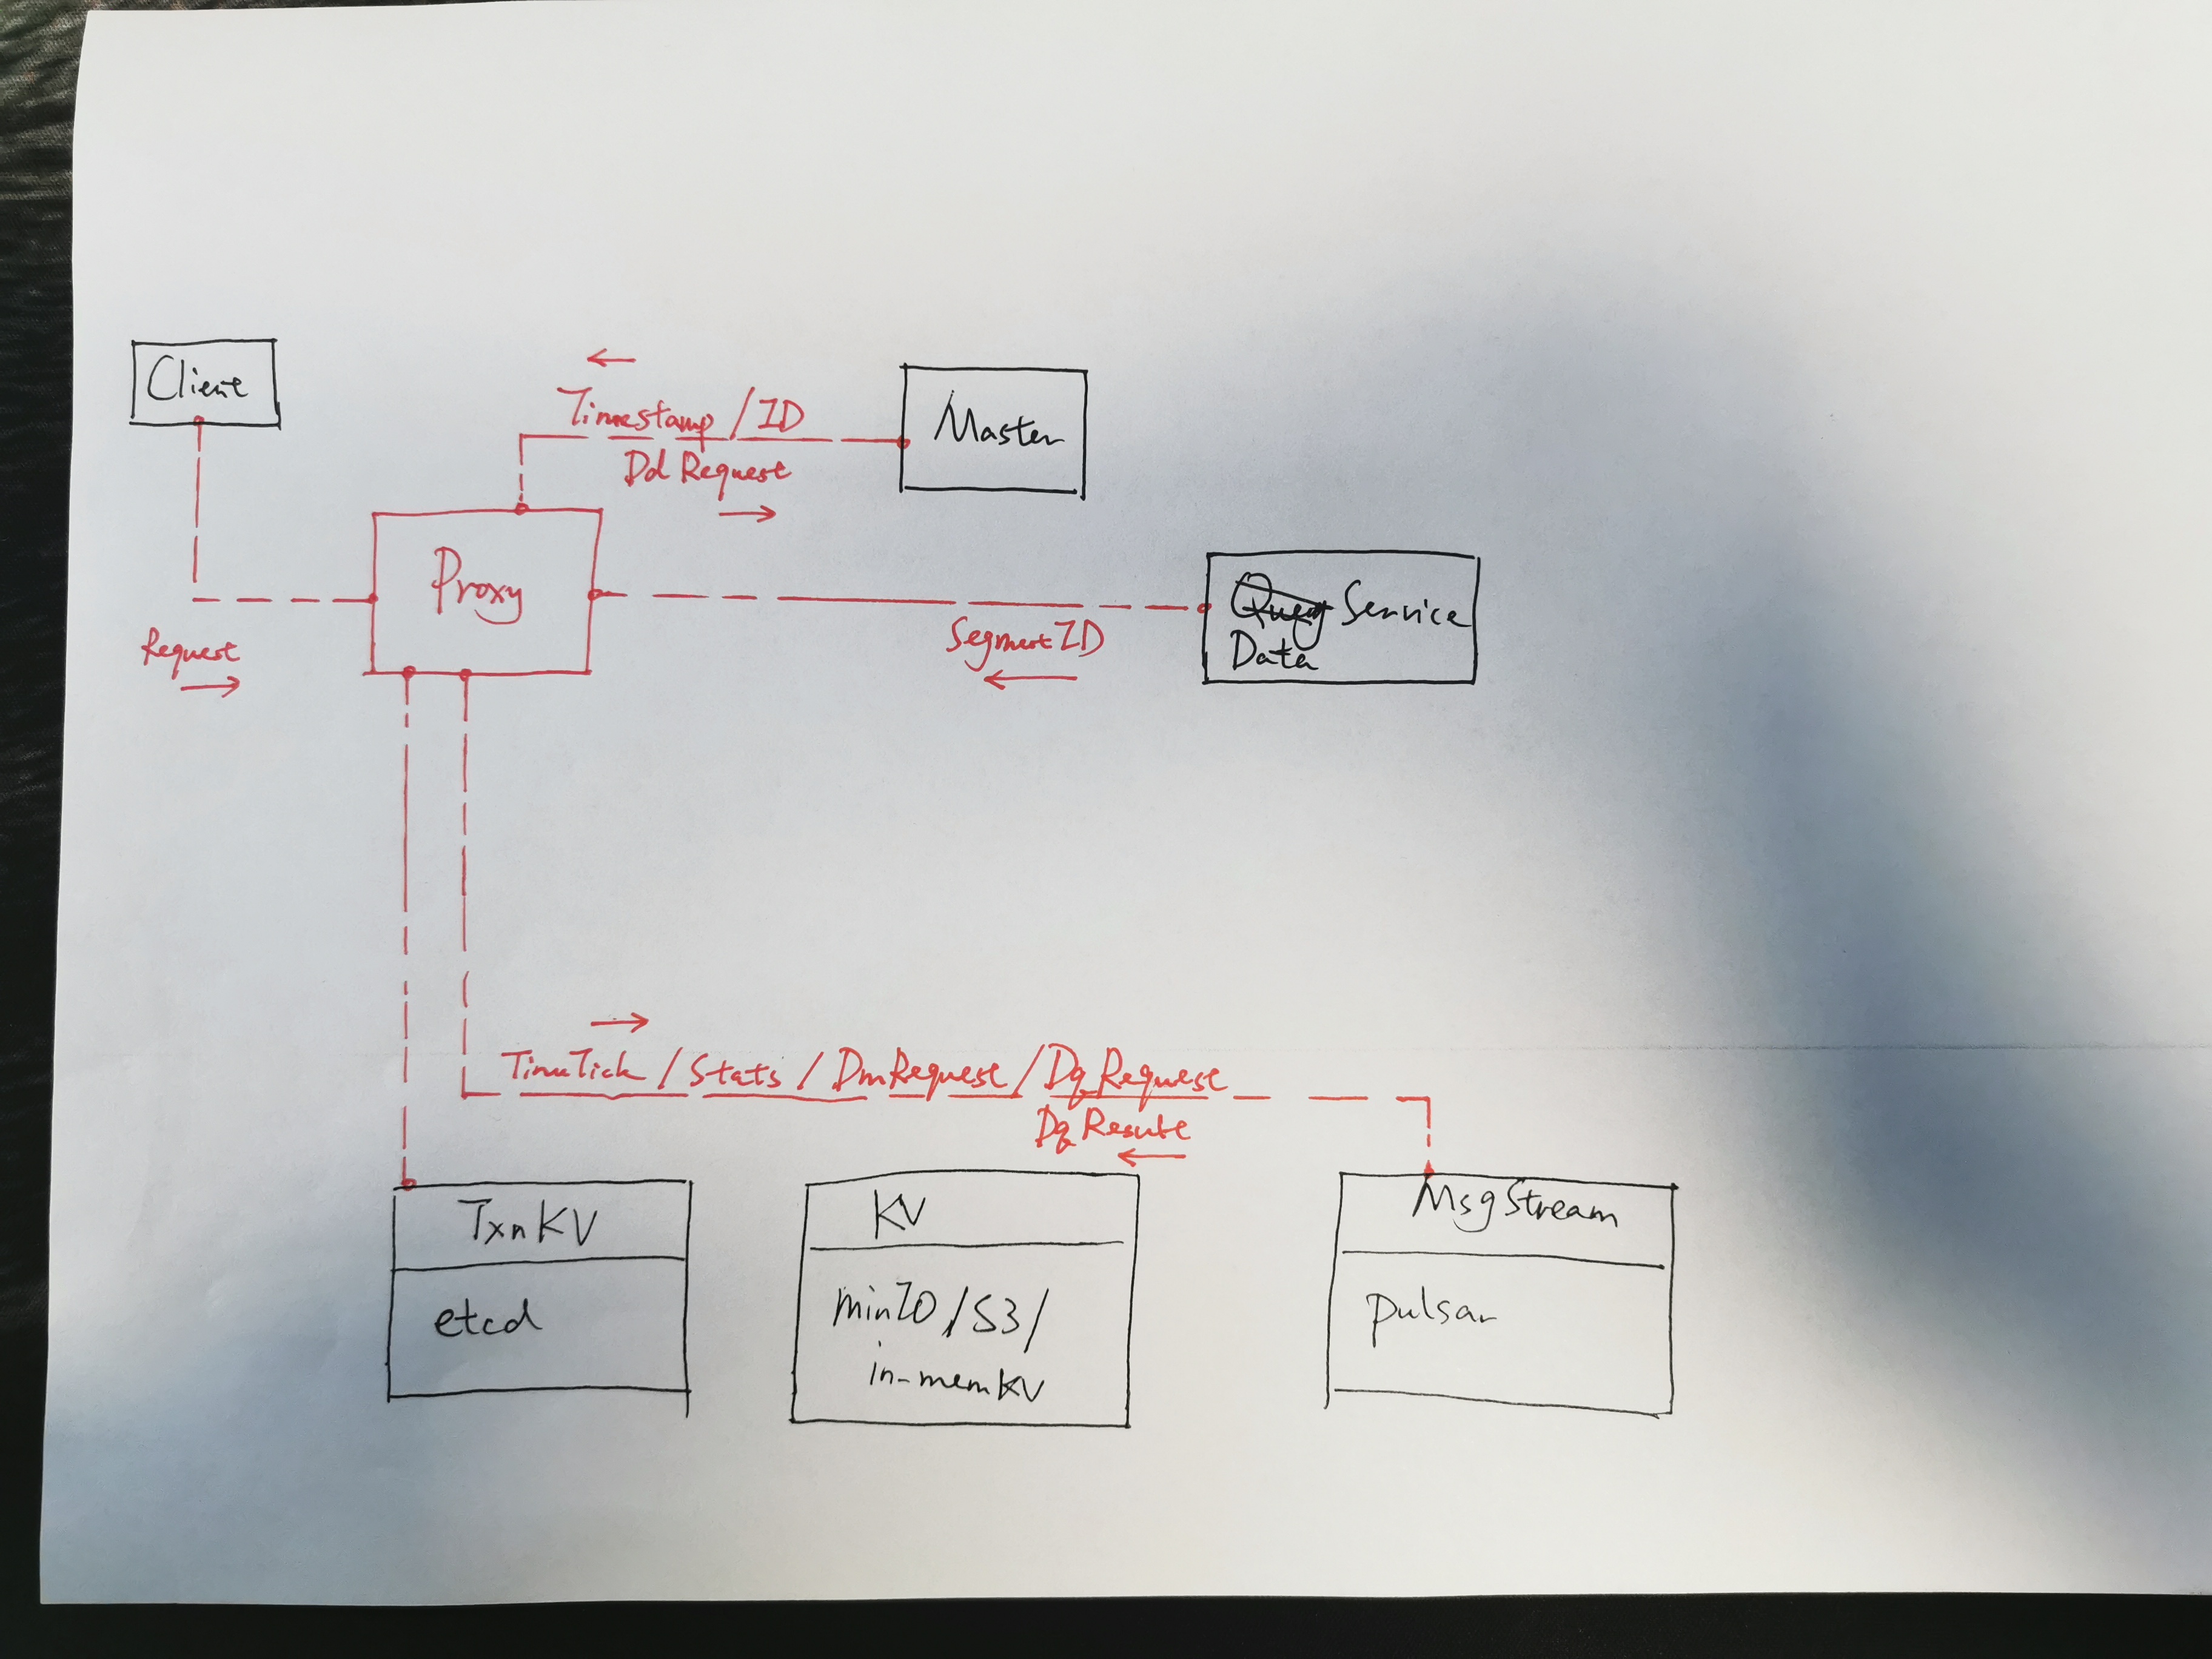 Client
Timestamp / ID
Dd Request
Master
Proxy
Request
Query Service
Data
Segment ID
TimeTick / Stats / DmRequest / Dq Request
Dq Result
TxnKV
etcd
KV
minIO / S3 /
in-memKV
MsgStream
pulsar